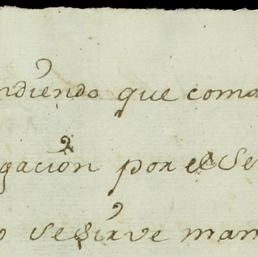 ndiendo que como
gación por el Se
o se sirve man